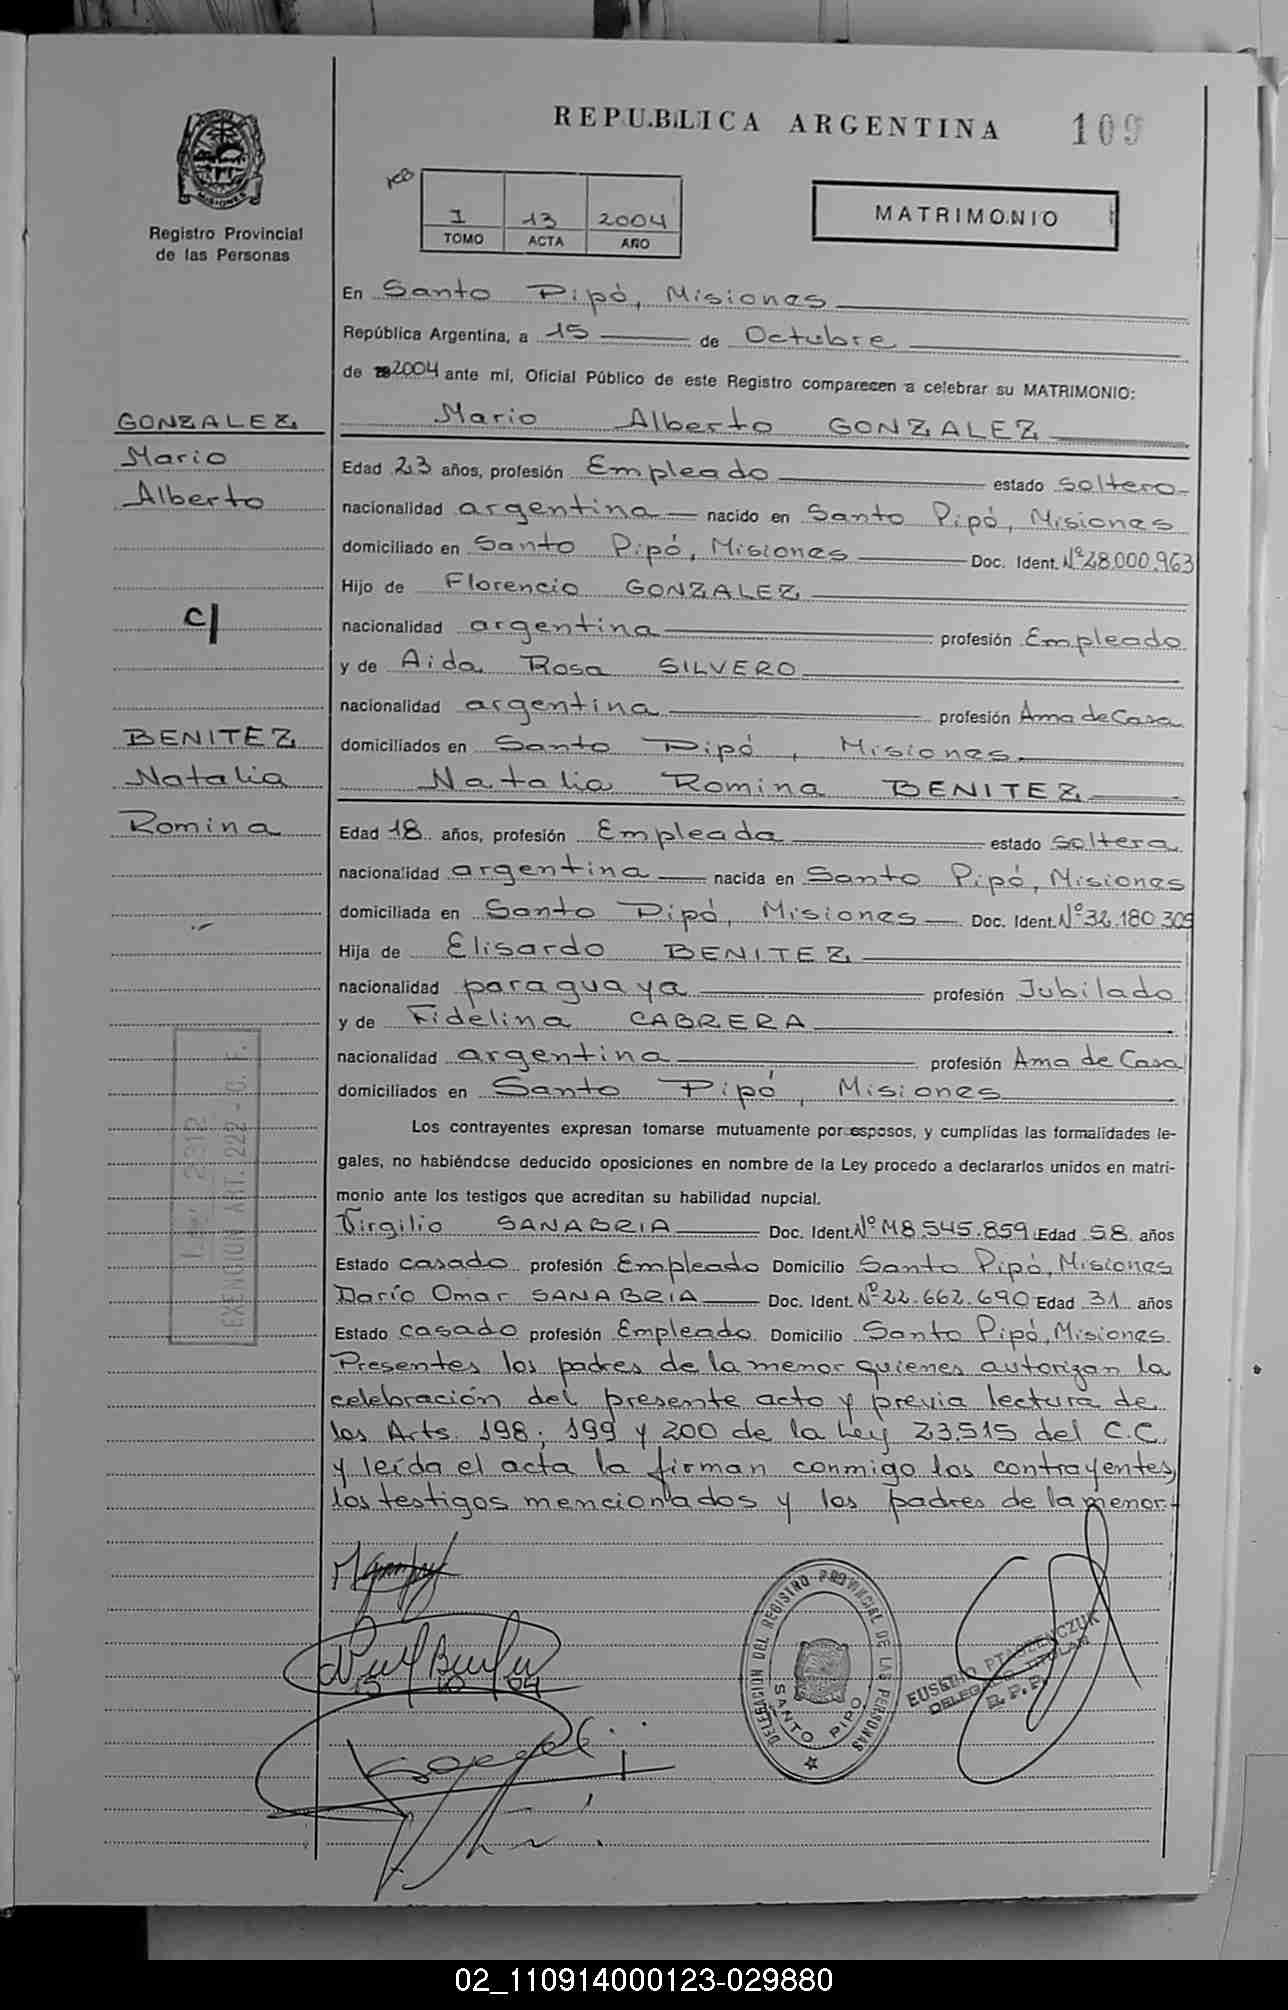 REPUBLICA ARGENTINA
109
MISIONES
Registro Provincial
de las Personas
I 13 2004
TOMO ACTA AÑO
MATRIMONIO
En Santo Pipó, Misiones
República Argentina, a 15 de Octubre
de 2004 ante mí, Oficial Público de este Registro comparecen a celebrar su MATRIMONIO:
GONZALEZ
Mario
Alberto
c/
BENITEZ
Natalia
Romina
Mario Alberto GONZALEZ
Edad 23 años, profesión Empleado estado soltero
nacionalidad argentina nacido en Santo Pipó, Misiones
domiciliado en Santo Pipó, Misiones Doc. Ident. Nº 28.000.963
Hijo de Florencio GONZALEZ
nacionalidad argentina profesión Empleado
y de Aida Rosa SILVERO
nacionalidad argentina profesión Ama de Casa
domiciliados en Santo Pipó, Misiones
Natalia Romina BENITEZ
Edad 18 años, profesión Empleada estado soltera
nacionalidad argentina nacida en Santo Pipó, Misiones
domiciliada en Santo Pipó, Misiones Doc. Ident. Nº 32.180.309
Hija de Elisardo BENITEZ
nacionalidad paraguaya profesión Jubilado
y de Fidelina CABRERA
nacionalidad argentina profesión Ama de Casa
domiciliados en Santo Pipó, Misiones
Los contrayentes expresan tomarse mutuamente por esposos, y cumplidas las formalidades le-
gales, no habiéndose deducido oposiciones en nombre de la Ley procedo a declararlos unidos en matri-
monio ante los testigos que acreditan su habilidad nupcial.
Virgilio SANABRIA Doc. Ident. Nº M8.545.859 Edad 58 años
Estado casado profesión Empleado Domicilio Santo Pipó, Misiones
Darío Omar SANABRIA Doc. Ident. Nº 22.662.690 Edad 31 años
Estado casado profesión Empleado Domicilio Santo Pipó, Misiones.
Presentes los padres de la menor quienes autorizan la
celebración del presente acto y previa lectura de
los Arts. 198, 199 y 200 de la Ley 23.515 del C.C.
y leída el acta la firman conmigo los contrayentes,
los testigos mencionados y los padres de la menor.
2312
EXENCION ART. 222
DELEGACION DEL REGISTRO PROVINCIAL DE LAS PERSONAS
SANTO PIPO
DELEGADO TITULAR
R.P.P.
15 10 04
02_110914000123-029880